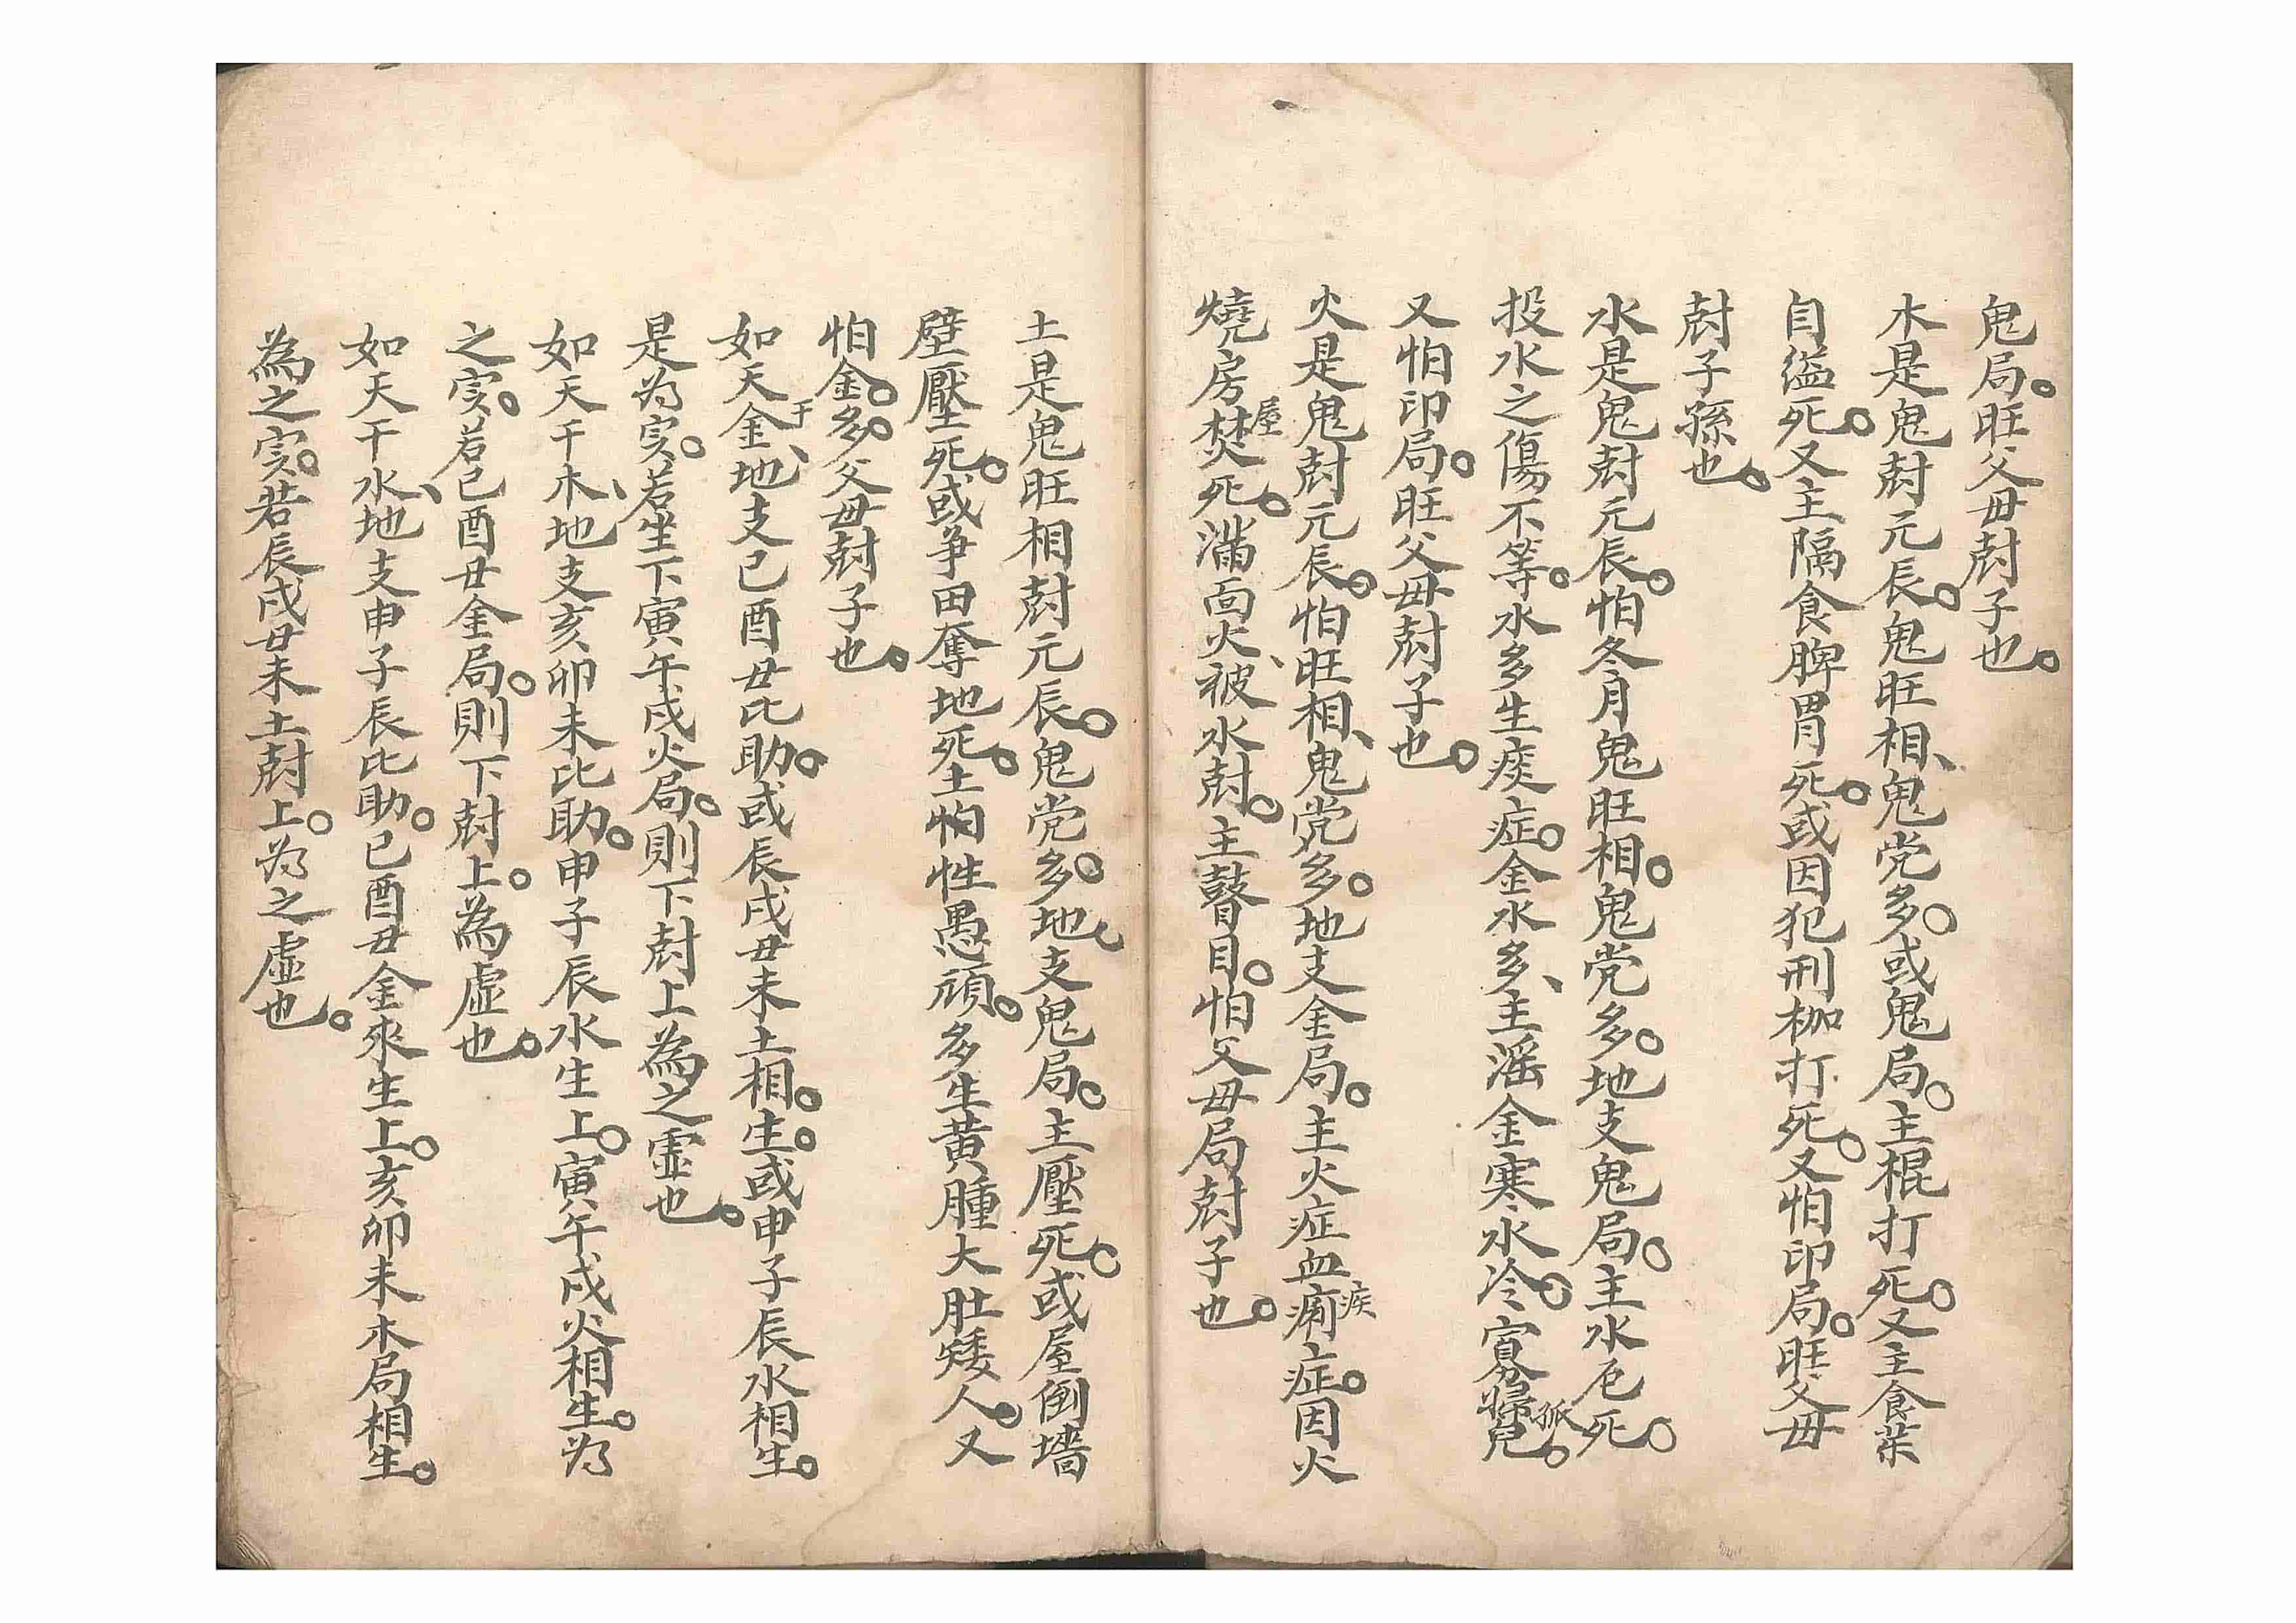 鬼局。旺父毋尅子也。
木是鬼尅元辰。鬼旺相、鬼党多。或鬼局。主棍打死。又主食茶
自縊死。又主隔食脾胃死。或因犯刑枷打死。又怕印局。旺父毋
尅子孫也。
水是鬼尅元辰。怕冬月鬼旺相。鬼党多。地支鬼局。主水厄死。
投水之傷不等。水多生痰症。金水多、主滛金寒水冷。寡婦孤兒。
又怕印局。旺父毋尅子也。
火是鬼尅元辰。怕旺相、鬼党多。地支金局。主火症血痢疾症。因火
燒房屋焚死。滿面火、被水尅。主瞽目。怕父毋局尅子也。
土是鬼旺相尅元辰。鬼党多。地支鬼局。主壓死。或屋倒墻
壁壓死。或争田奪地死。土怕性愚頑。多生黃腫大肚矮人。又
怕金。多。父毋尅子也。
如天干金、地支巳酉丑比助。或辰戌丑未土相。生。或申子辰水相生。
是为实。若坐下寅午戌火局。則下尅上為之虛也。
如天干木、地支亥卯未比助。申子辰水生上。寅午戌火相生。为
之实。若巳酉丑金局。則下尅上。為虛也。
如天干水、地支申子辰比助。巳酉丑金來生上。亥卯未木局相生。
為之实。若辰戌丑未土尅上。为之虛也。